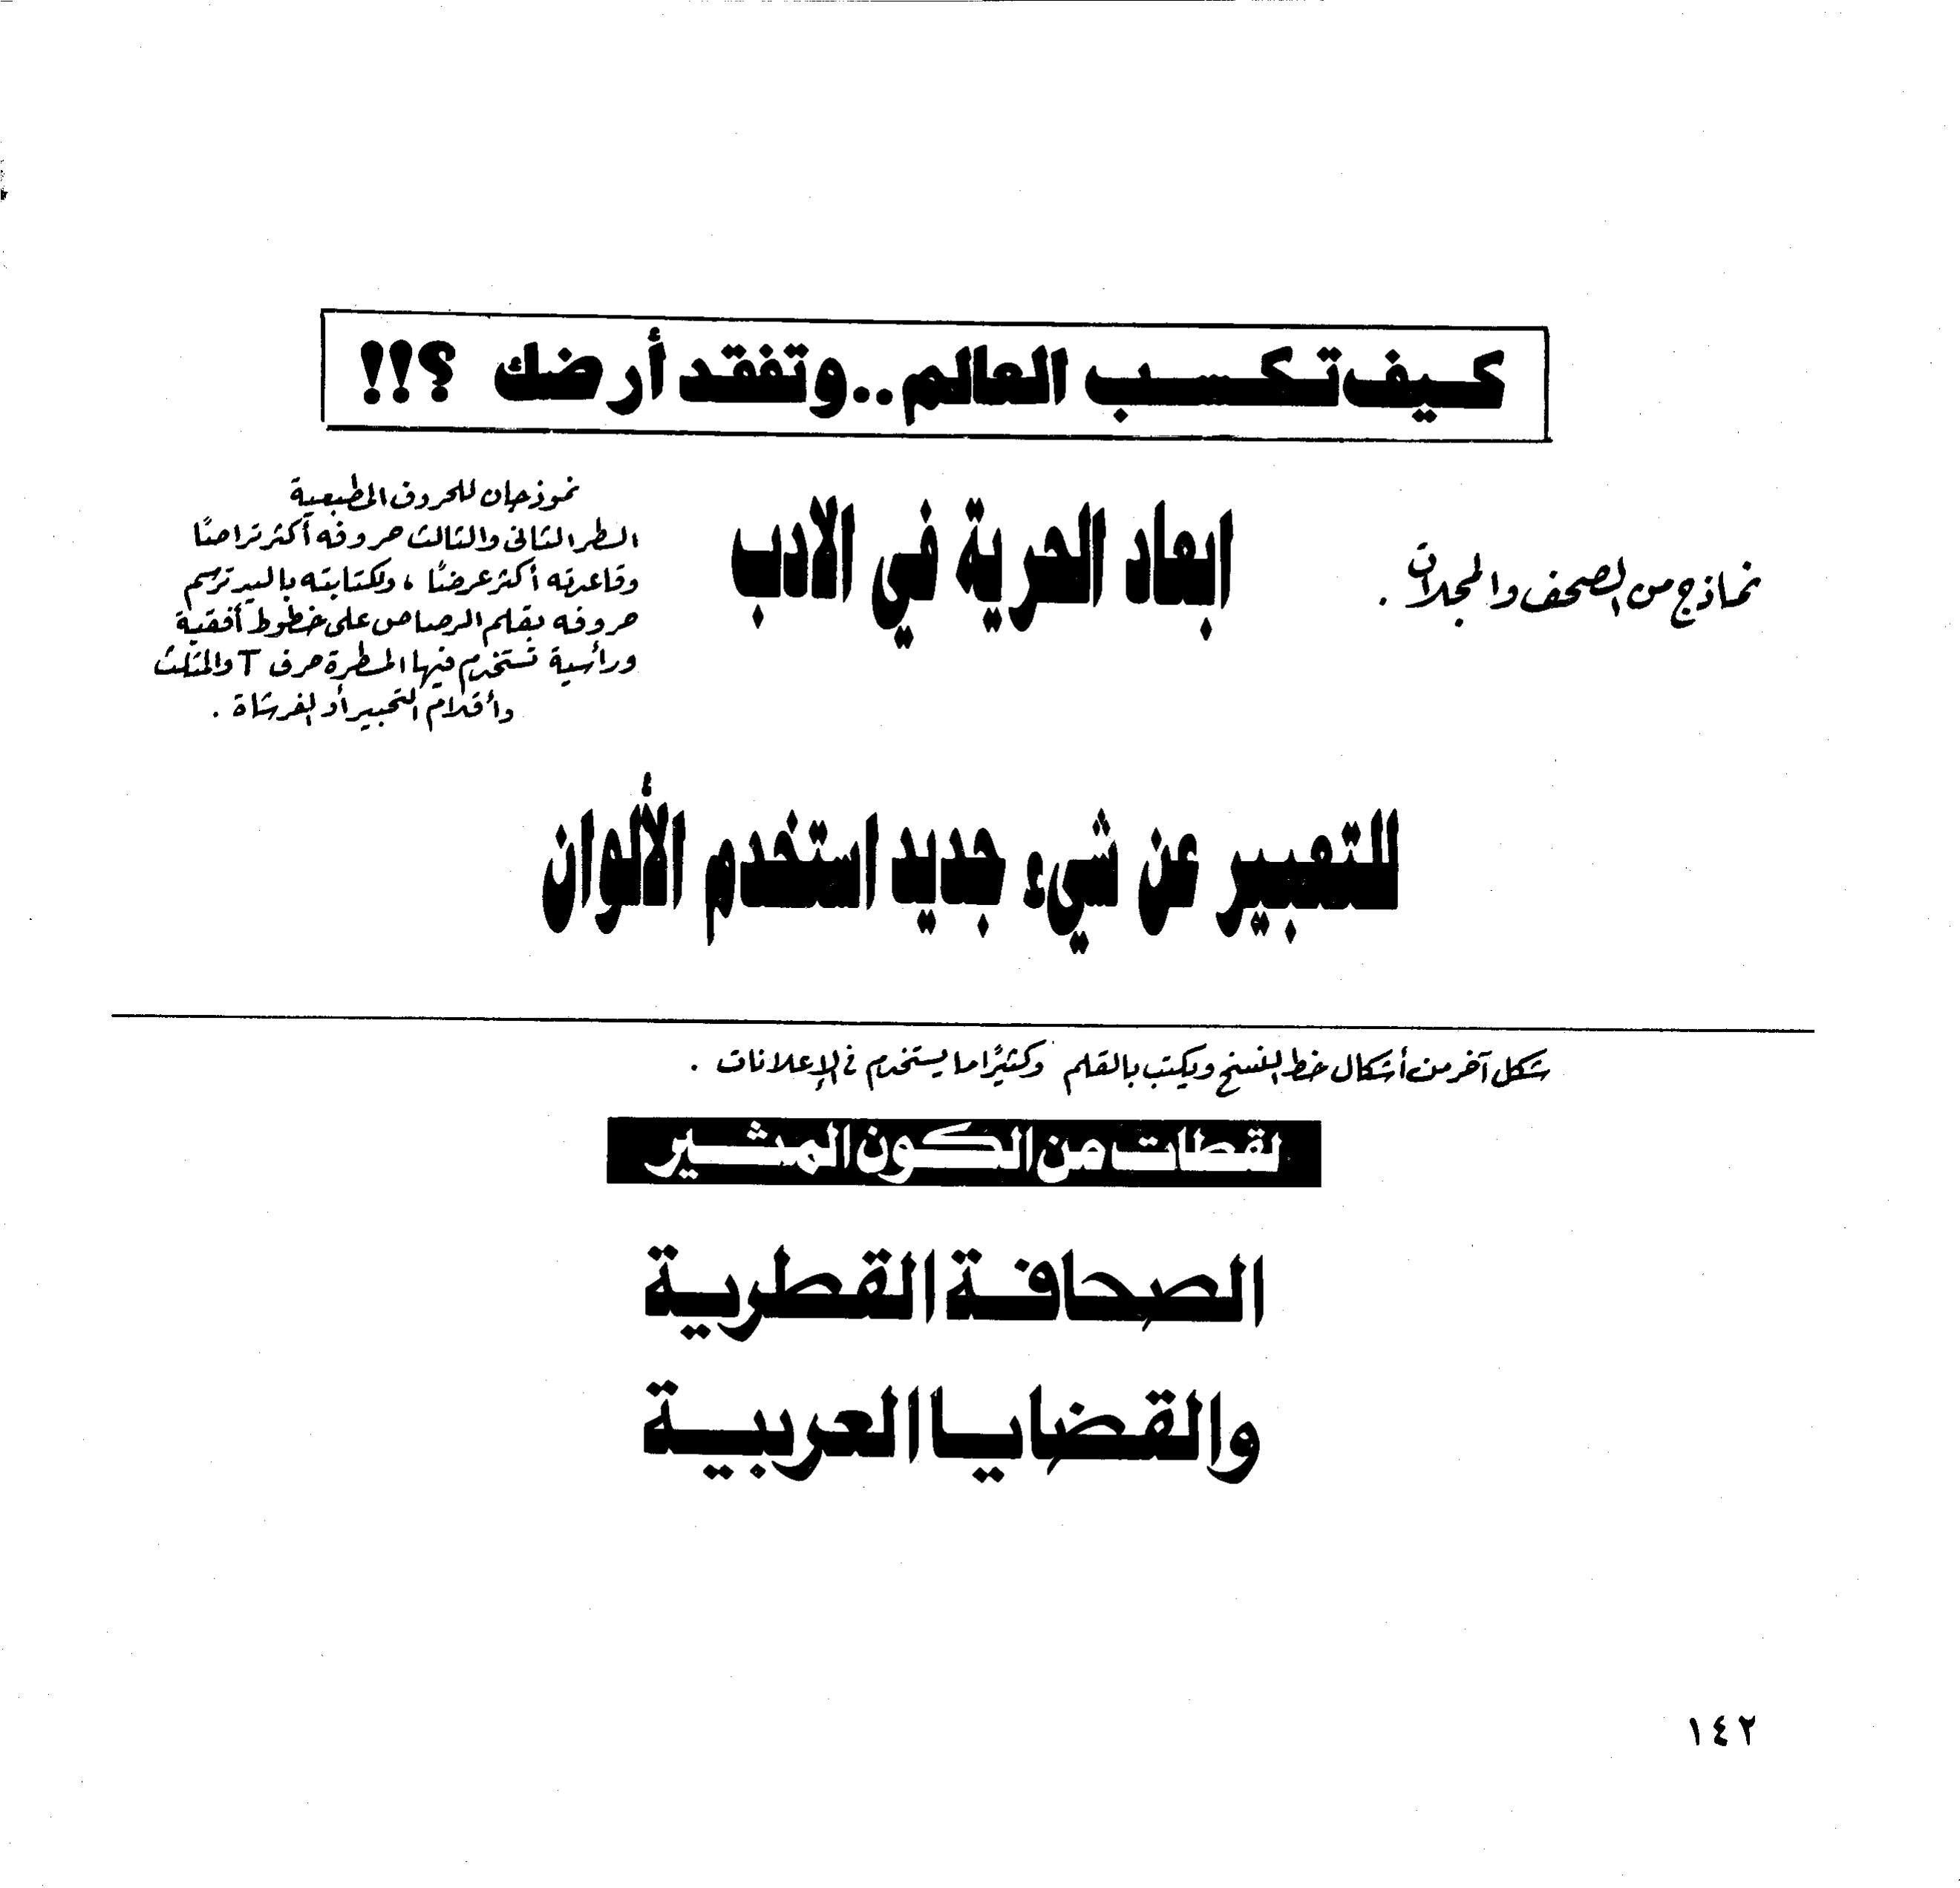 كيف تكسب العالم..وتفقد أرضك ؟!!
نماذج من الصحف والمجلات .
ابعاد الحرية في الادب
نموذجان للحروف المطبعية
السطر الثانى والثالث حروفه أكثر تراصًا
وقاعدته أكثر عرضًا ، ولكتابته باليد ترسم
حروفه بقلم الرصاص على خطوط أفقية
ورأسية تستخدم فيها المسطرة حرف T والمثلث
وأقلام التحبير أو الفرشاة .
للتعبير عن شيء جديد استخدم الألوان
شكل آخر من أشكال خط النسخ ويكتب بالقلم وكثيرًا ما يستخدم فى الإعلانات .
لقطات من الكون المثير
الصحافة القطرية
والقضايا العربية
١٤٢